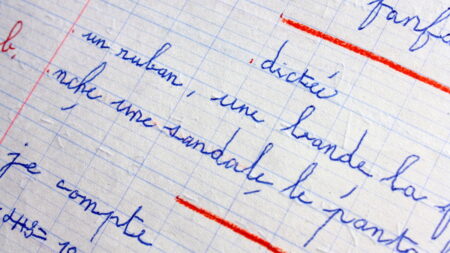 fanfa
dictée
b. un ruban, une bande la f
nche une sandale, le panta
je compte